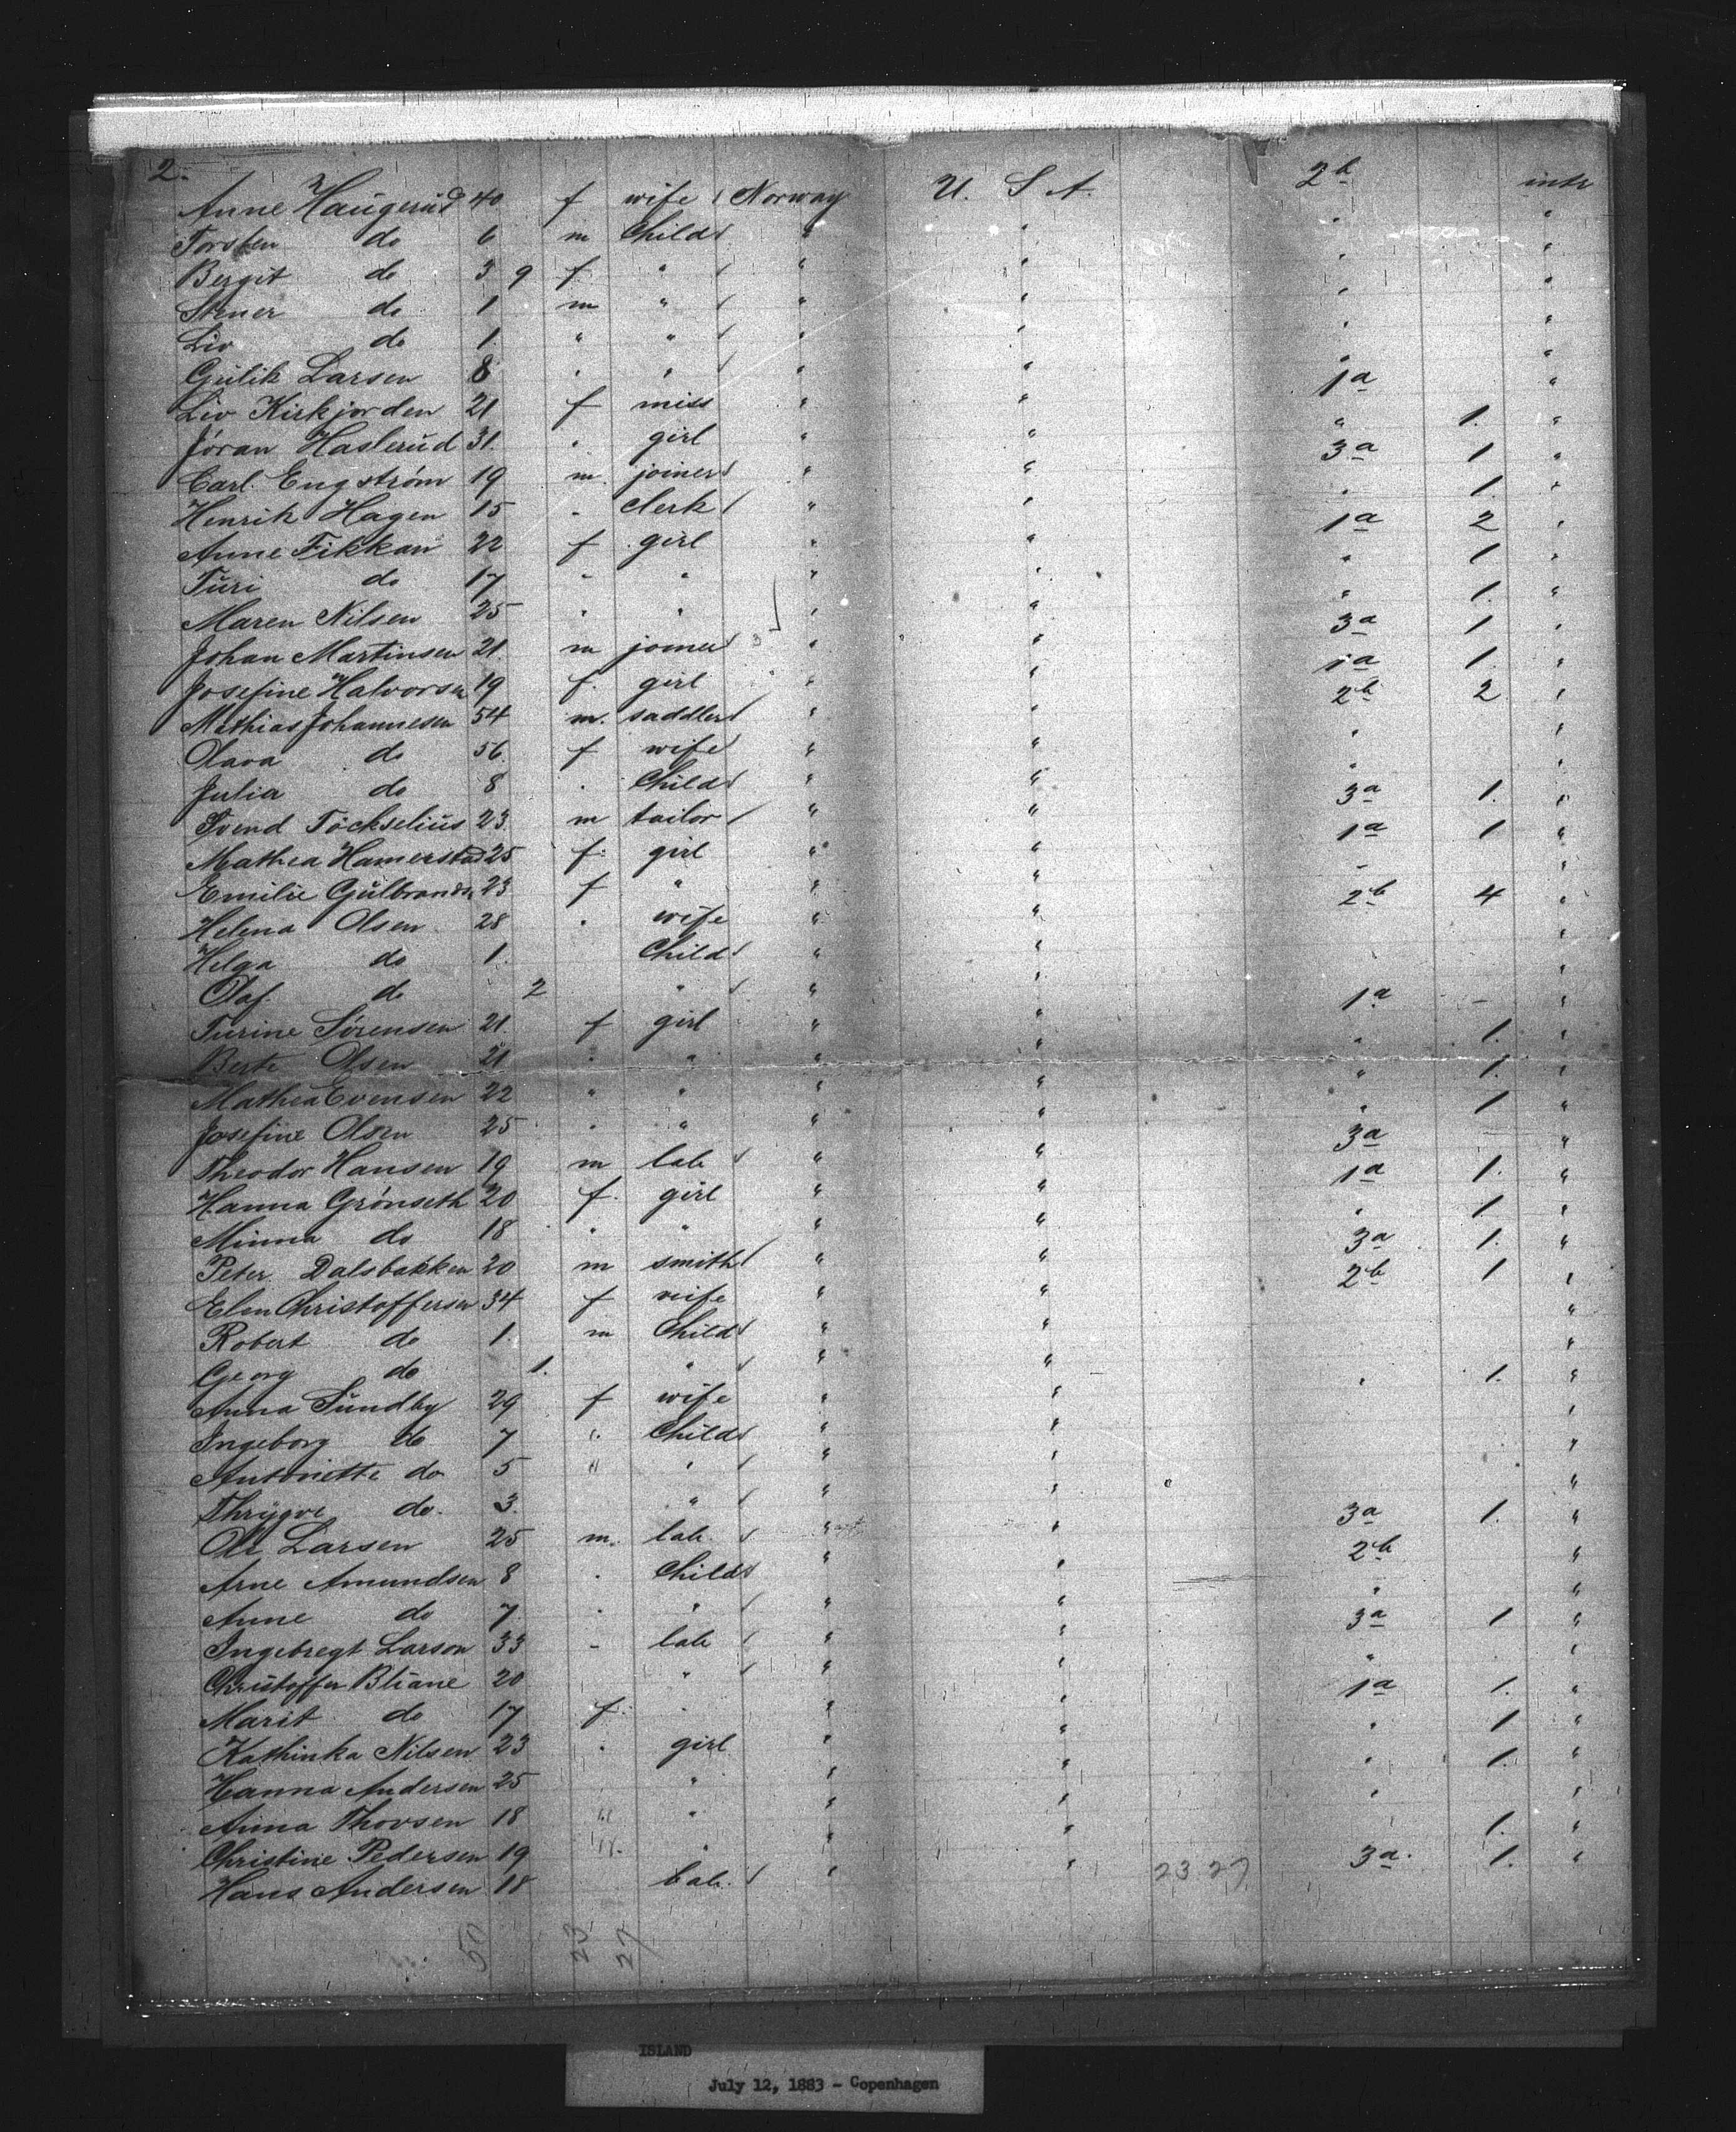 2.
Anne Haugerud 40 f wife Norway U. S. A. 2b inte
Torsten do 6 m Child " " "
Bergit do 3 9 f " " " " "
Stener do 1 m " " " " "
Liv do 1 " " " " " "
Gulik Larsen 8 " " " " " "
Liv Kirkjorden 21 f miss " " 1a "
Jöran Haslerud 31. " girl " " " 1. "
Carl Engström 19 m. joiner " " 3a 1 "
Henrik Hagen 15 " Clerk " " " 1. "
Anne Fikkan 22 f girl " " 1a 2 "
Turi do 17 " " " " " 1 "
Maren Nilsen 25 " " " " " 1. "
Johan Martinsen 21. m joiner " " 3a 1 "
Josefine Halvorsen 19 f. girl " " 1a 1. "
Mathias Johannesen 54 m. saddler " " 2b 2 "
Olava do 56 f wife " " " "
Julia do 8 " Child " " " "
Svend Töckselius 23. m tailor " " 3a 1. "
Mathea Hamerstad 25 f. girl " " 1a 1 "
Emilie Gulbrands. 23 f " " " - "
Helena Olsen 28 " wife " " 2b 4 "
Helga do 1. Child " " "
Olaf do 2 " " " "
Turine Sörensen 21. f girl " " 1a - "
Berte Olsen 21 " " " " " 1. "
Mathea Evensen 22 " " " " " 1. "
Josefine Olsen 25 " " " " " 1 "
Theodor Hansen 19 m lab " " 3a "
Hanna Grönseth 20 f. girl " " 1a 1. "
Minna do 18 " " " " " 1. "
Peter Dalsbakken 20 m smith " " 3a 1. "
Elen Christoffersen 34 f wife " " 2b 1 "
Robert do 1. m Child " " "
Georg do 1. " " " "
Anna Sundby 29 f wife " " " 1. "
Ingeborg do 7 " Child " " "
Antonette do 5 " " " " "
Thrygve do. 3. " " " "
Ole Larsen 25 m. lab " " 3a 1. "
Arne Amundsen 8 " Child " " 2b "
Anne do 7 " " " " " "
Ingebregt Larson 33 - lab " " 3a 1 "
Christoffer 20 " " " " "
Marit do 17 f. " " " 1a 1. "
Kathinka Nilsen 23 " girl " " " 1 "
Hanna Andersen 25 " " " " 1. "
Anna Thovsen 18 " " " " " "
Christine Pedersen 19 " " " " 1. "
Hans Andersen 18 lab. " " 23 27 3a. 1. "
50 23 27
ISLAND
July 12, 1883 - Copenhagen